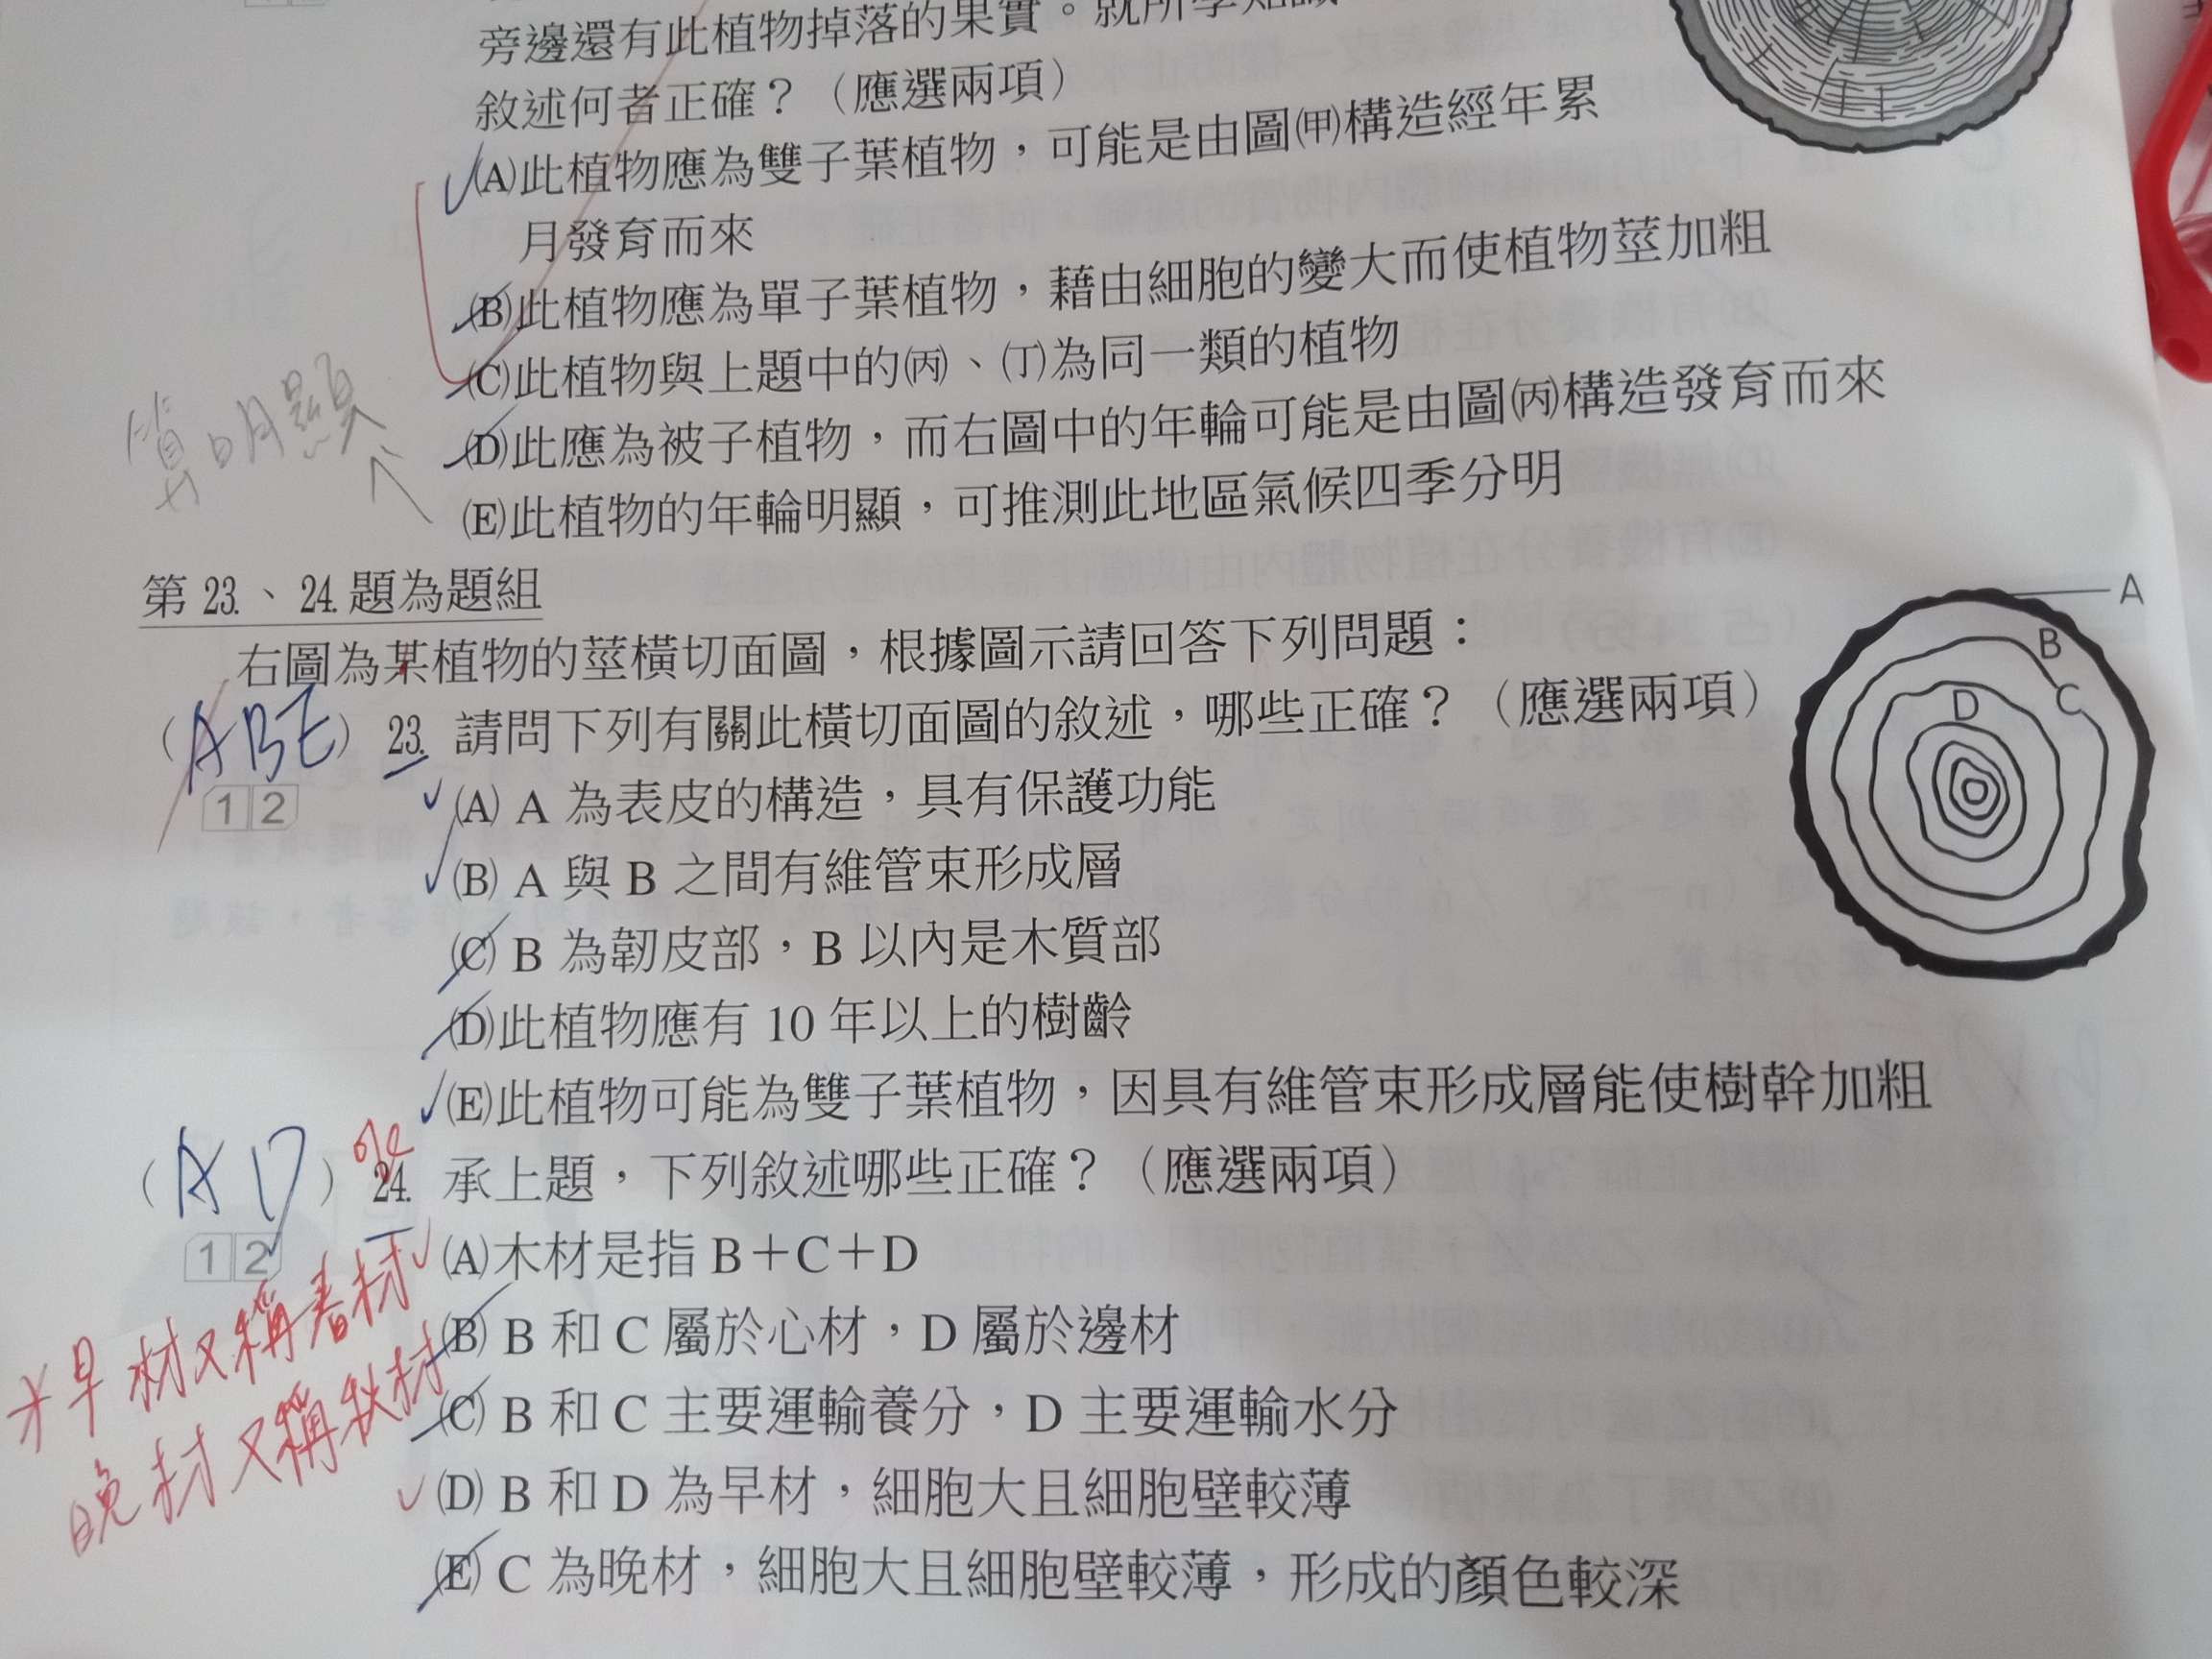 旁邊還有此植物掉落的果實。就所學知識
敘述何者正確？（應選兩項）
(A)此植物應為雙子葉植物，可能是由圖(甲)構造經年累
月發育而來
(B)此植物應為單子葉植物，藉由細胞的變大而使植物莖加粗
(C)此植物與上題中的(丙)、(丁)為同一類的植物
(D)此應為被子植物，而右圖中的年輪可能是由圖(丙)構造發育而來
(E)此植物的年輪明顯，可推測此地區氣候四季分明
明顯
第 23.、24. 題為題組
右圖為某植物的莖橫切面圖，根據圖示請回答下列問題：
A
B
C
D
(ABE) 23. 請問下列有關此橫切面圖的敘述，哪些正確？（應選兩項）
1 2
(A) A 為表皮的構造，具有保護功能
(B) A 與 B 之間有維管束形成層
(C) B 為韌皮部，B 以內是木質部
(D)此植物應有 10 年以上的樹齡
(E)此植物可能為雙子葉植物，因具有維管束形成層能使樹幹加粗
(AD) 24. 承上題，下列敘述哪些正確？（應選兩項）
1 2
(A)木材是指 B＋C＋D
(B) B 和 C 屬於心材，D 屬於邊材
(C) B 和 C 主要運輸養分，D 主要運輸水分
(D) B 和 D 為早材，細胞大且細胞壁較薄
(E) C 為晚材，細胞大且細胞壁較薄，形成的顏色較深
早材又稱春材
晚材又稱秋材